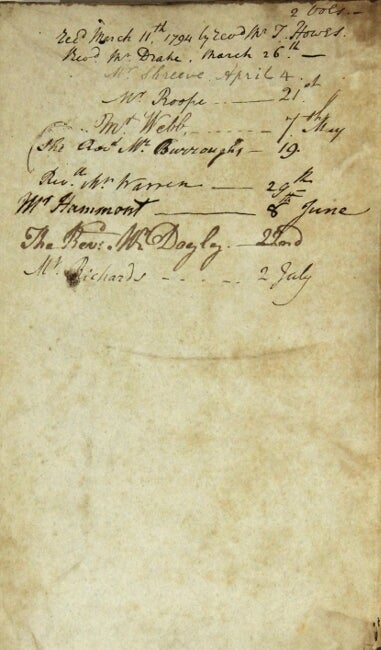 2 Vols. —
Rec'd March 11th 1794 by revd Mr T. Howes.
Revd Mr Drake, March 26th —
Mr Shreeve April 4
Mr Roope — 21st
Mr Webb — 7th May
The Revd Mr Burroughs — 19
Revd Mr Warren — 29th
Mr Hammont — 8th June
The Revd Mr Dayley — 22nd
Mr Richards - - - - 2 July